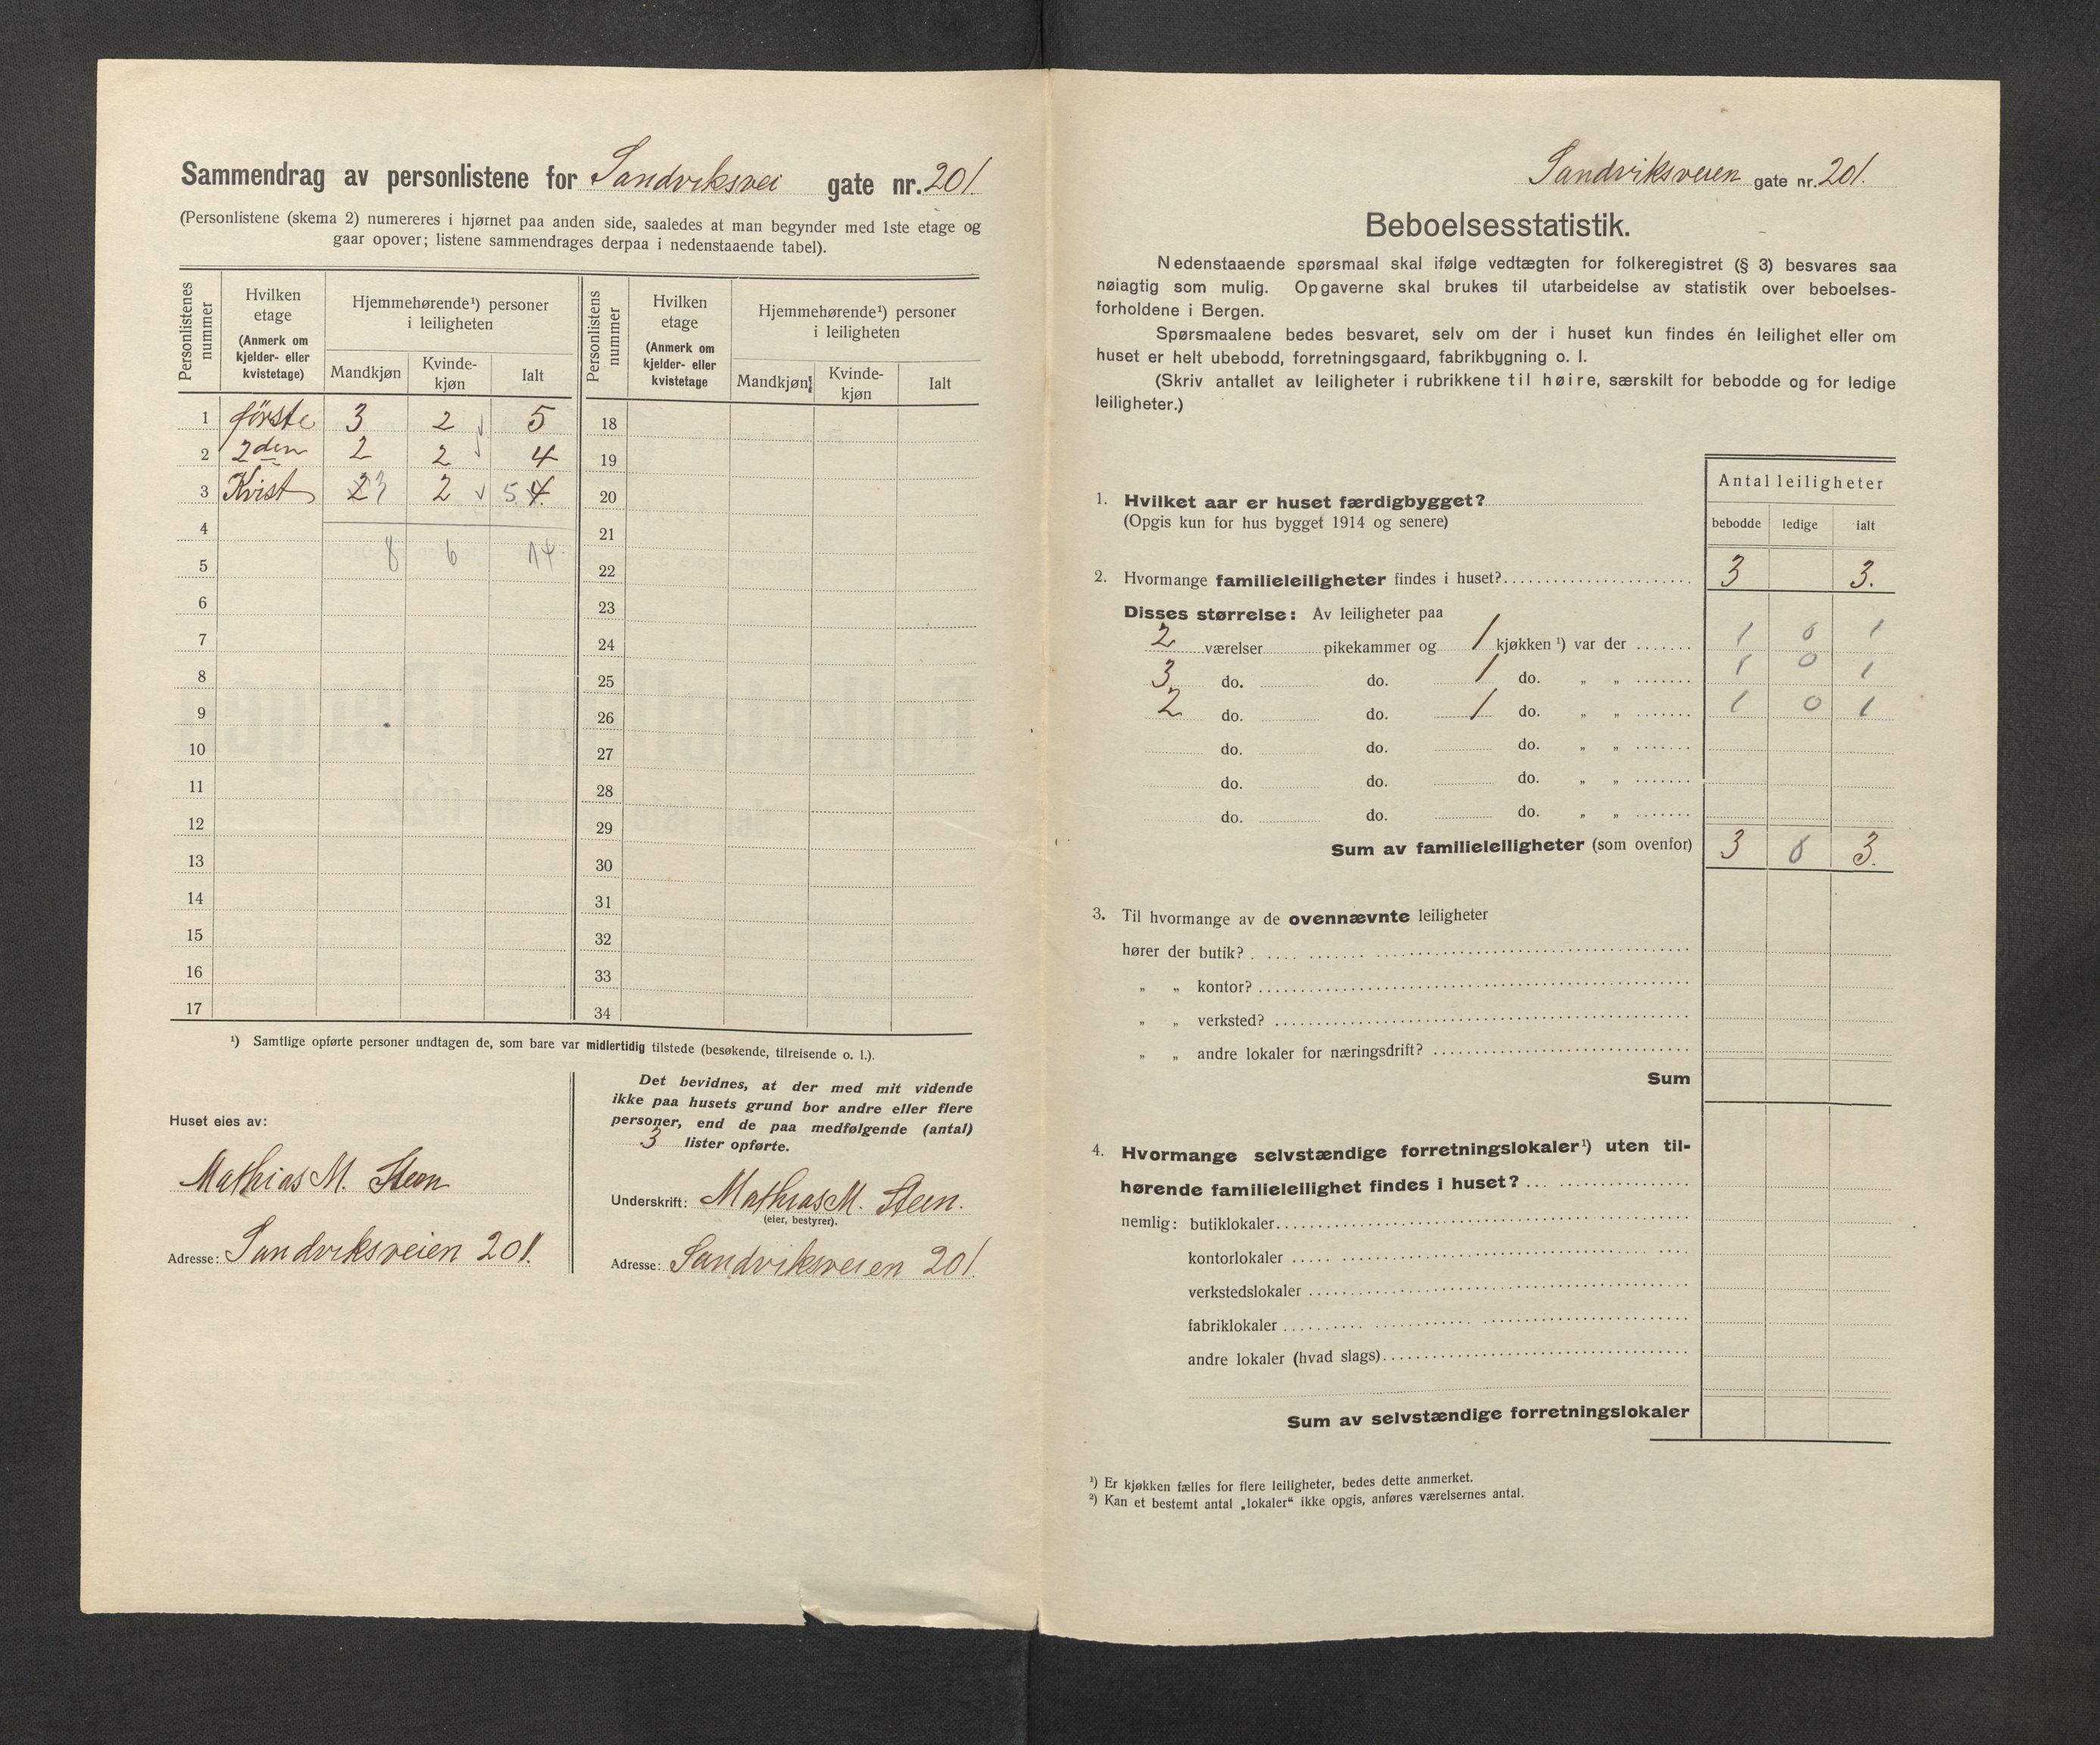 Sammendrag av personlistene for Sandviksvei gate nr. 201
(Personlistene (skema 2) numereres i hjørnet paa anden side, saaledes at man begynder med 1ste etage og
gaar opover; listene sammendrages derpaa i nedenstaaende tabel).
Personlistenes nummer
Hvilken etage (Anmerk om kjelder- eller kvistetage)
Hjemmehørende¹) personer i leiligheten
Mandkjøn Kvinde-kjøn Ialt
Personlistens nummer
Hvilken etage (Anmerk om kjelder- eller kvistetage
Hjemmehørende¹) personer i leiligheten
Mandkjøn Kvinde-kjøn Ialt
1 første 3 2 5 18
2 2den 2 2 4 19
3 Kvist 2 3 2 5 4 20
4 21
8 6 14
5 22
6 23
7 24
8 25
9 26
10 27
11 28
12 29
13 30
14 31
15 32
16 33
17 34
¹) Samtlige opførte personer undtagen de, som bare var midlertidig tilstede (besøkende, tilreisende o. l.).
Huset eies av:
Mathias M. Steen
Adresse: Sandviksveien 201.
Det bevidnes, at der med mit vidende
ikke paa husets grund bor andre eller flere
personer, end de paa medfølgende (antal)
3 lister opførte.
Underskrift: Mathias M. Steen.
(eier, bestyrer).
Adresse: Sandviksveien 201.
Sandviksveien gate nr. 201.
Beboelsesstatistik.
Nedenstaaende spørsmaal skal ifølge vedtægten for folkeregistret (§ 3) besvares saa
nøiagtig som mulig. Opgaverne skal brukes til utarbeidelse av statistik over beboelses-
forholdene i Bergen.
Spørsmaalene bedes besvaret, selv om der i huset kun findes én leilighet eller om
huset er helt ubebodd, forretningsgaard, fabrikbygning o. l.
(Skriv antallet av leiligheter i rubrikkene til høire, særskilt for bebodde og for ledige
leiligheter.)
Antal leiligheter
bebodde ledige ialt
1. Hvilket aar er huset færdigbygget?
(Opgis kun for hus bygget 1914 og senere)
2. Hvormange familieleiligheter findes i huset? 3 3.
Disses størrelse: Av leiligheter paa
2 værelser pikekammer og 1 kjøkken ¹) var der 1 0 1
3 do. do. 1 do. „ „ 1 0 1
2 do. do. 1 do. „ „ 1 0 1
do. do. do. „ „
do. do. do. „ „
do. do. do. „ „
Sum av familieleiligheter (som ovenfor) 3 0 3.
3. Til hvormange av de ovennævnte leiligheter
hører der butik?
„ „ kontor?
„ „ verksted?
„ „ andre lokaler for næringsdrift?
Sum
4. Hvormange selvstændige forretningslokaler¹) uten til-
hørende familieleilighet findes i huset?
nemlig: butiklokaler
kontorlokaler
verkstedslokaler
fabriklokaler
andre lokaler (hvad slags)
Sum av selvstændige forretningslokaler
¹) Er kjøkken fælles for flere leiligheter, bedes dette anmerket.
²) Kan et bestemt antal „lokaler“ ikke opgis, anføres værelsernes antal.